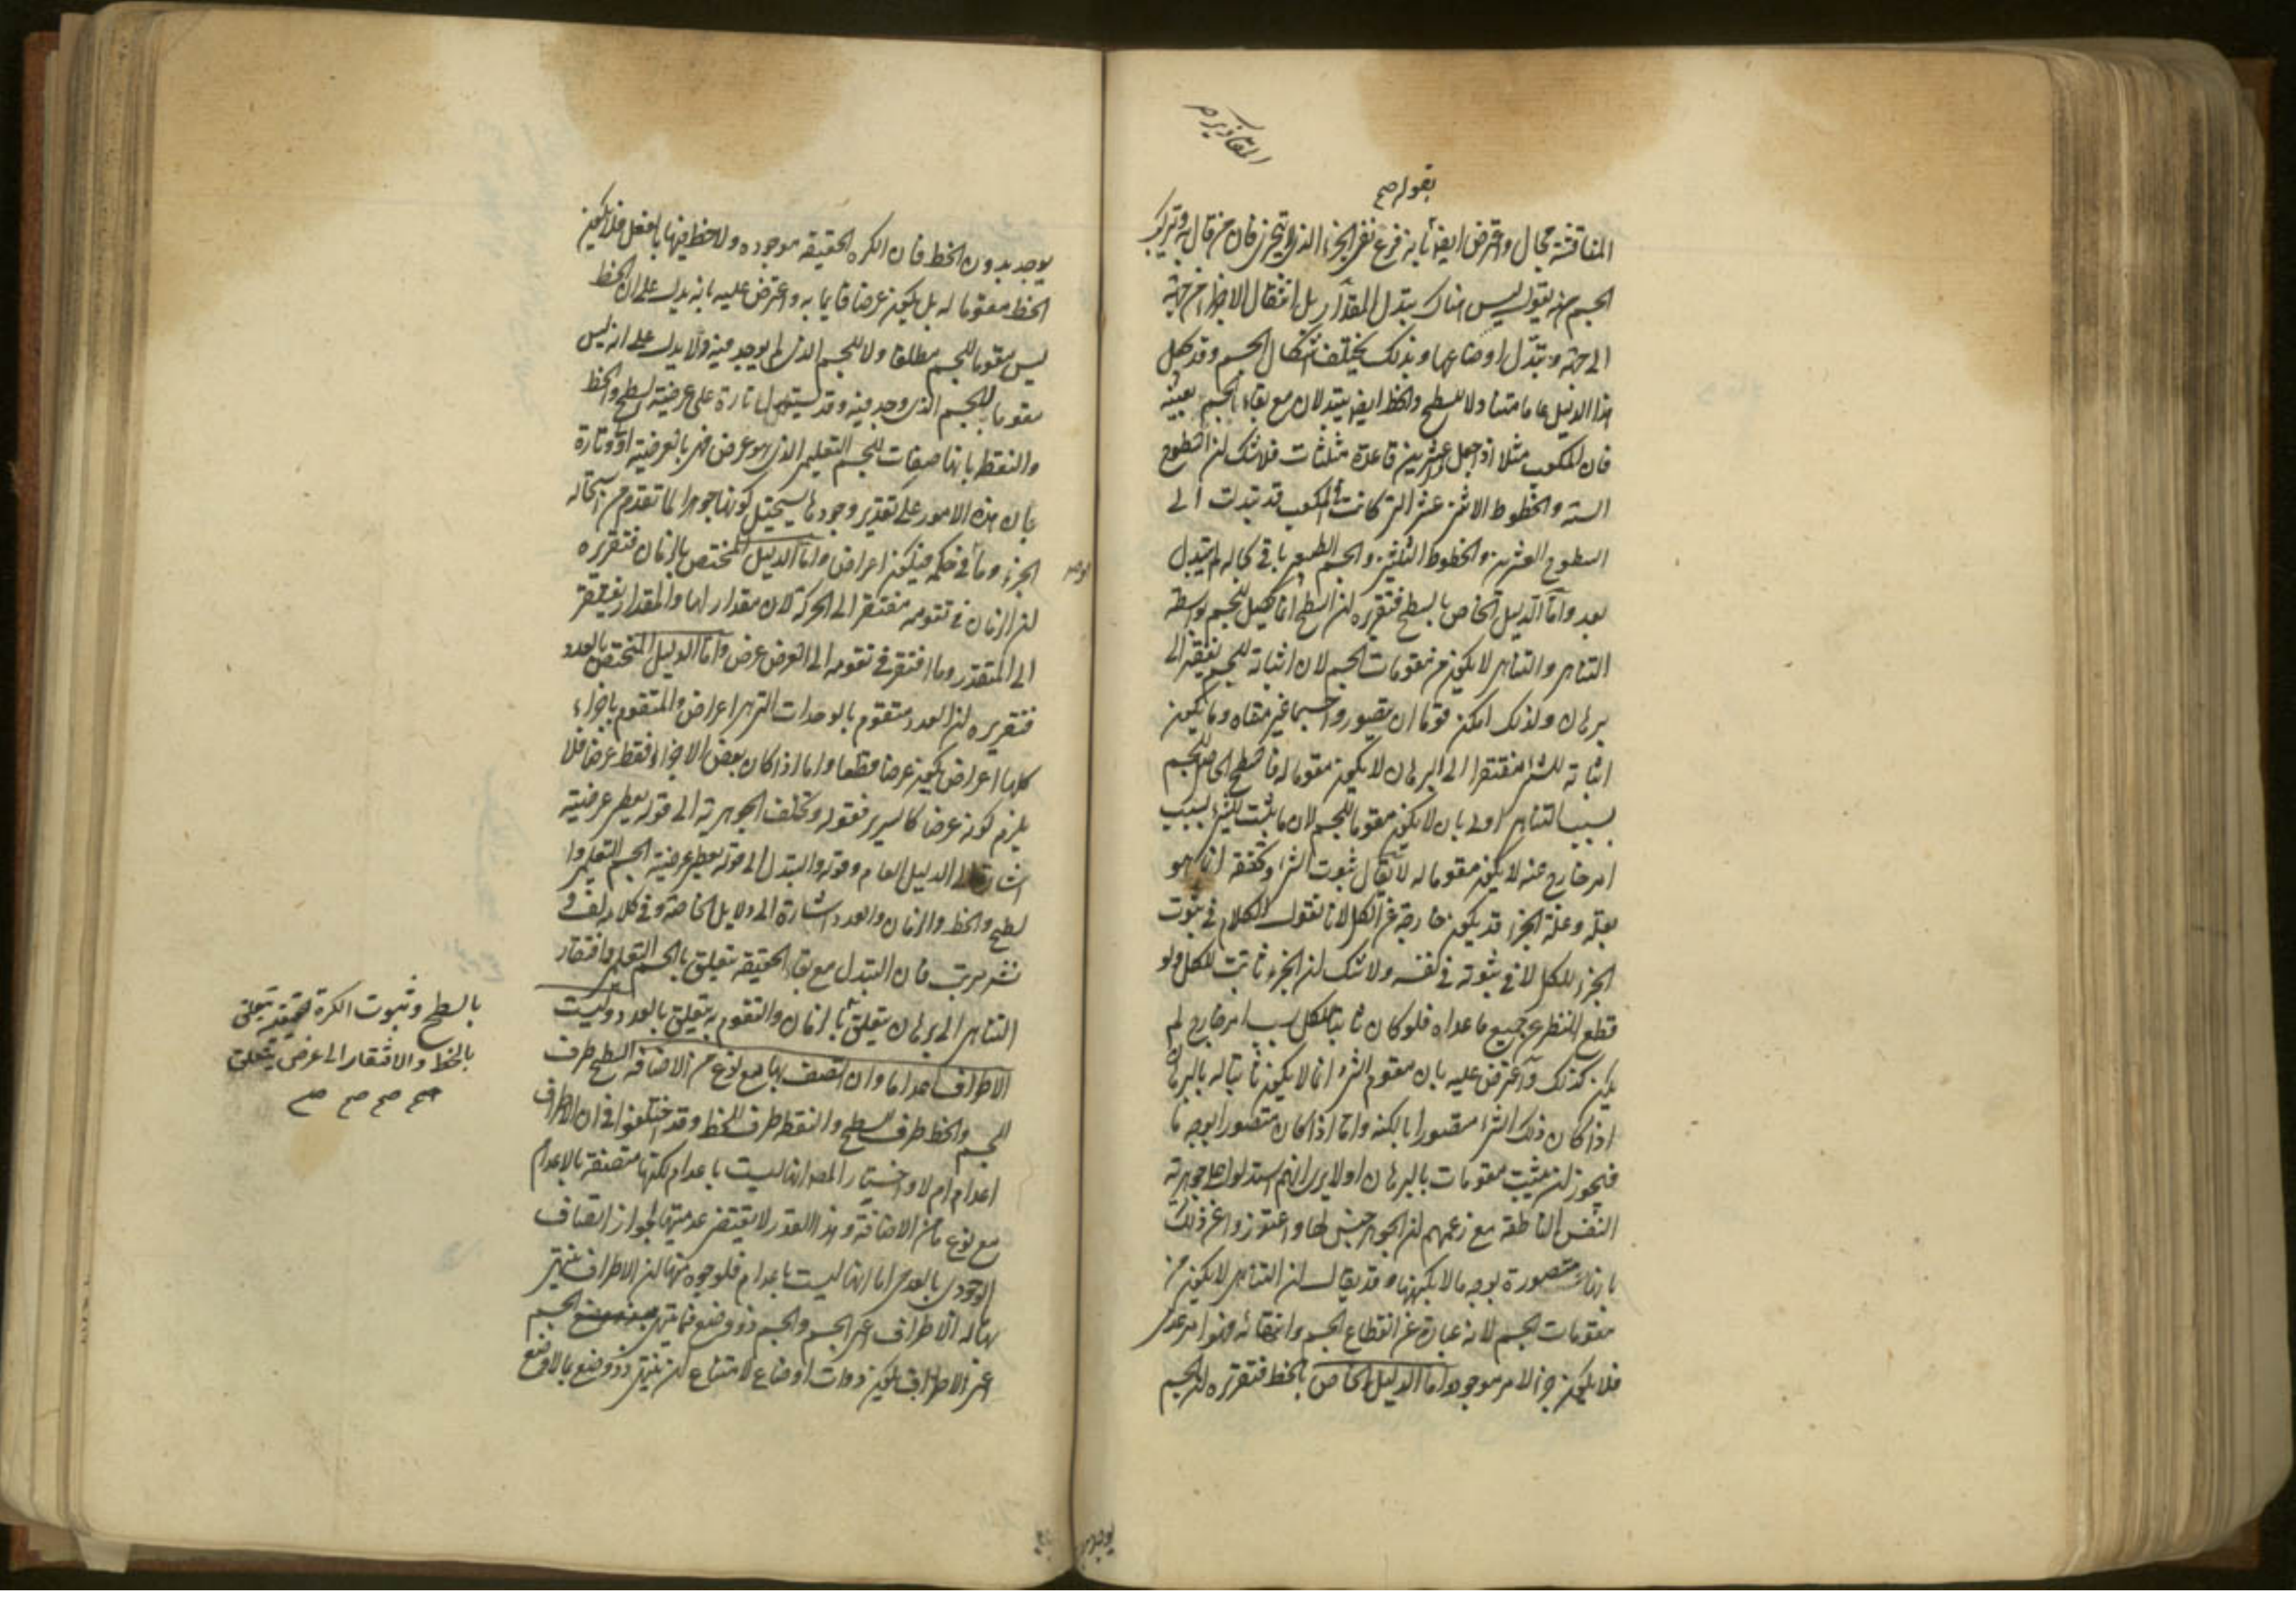 بقوله صح
المناقشة مجال واعترض ايضا بانه فرع نفي الجزء الذي لا يتجزى فان من قال به وتركب
الجسم منه يقول ليس هناك يتبدل المقدار بل انتقال الاجزاء من جهة
الى جهة وتبدل اوضاعها وبذلك يختلف اشكال الجسم وقد يجعل
هذا الدليل عاما متناولا للسطح والخط ايضا يتبدلان مع بقاء الجسم بعينه
فان المكعب مثلا اذا جعل ذا عشرين قاعدة مثلثات فلا شك ان السطوح
الستة والخطوط الاثنى عشر التي كانت في المكعب قد تبدلت الى
السطوح العشرين والخطوط الثلثين والجسم الطبيعي باق بحاله لم يتبدل
بعد واما الدليل الخاص بالسطح فتقريره ان السطح انما يحصل للجسم بواسطة
التناهي والتناهي لا يكون من مقومات الجسم لان اثباته للجسم يفتقر الى
برهان ولذلك امكن قوما ان يتصوروا جسما غير متناه وما يكون
اثباته للشئ مفتقرا الى البرهان لا يكون مقوما له فالسطح الحاصل للجسم
بسبب التناهي اولى بان لا يكون مقوما للجسم لان ما يثبت للشئ بسبب
امر خارج عنه لا يكون مقوما له لا يقال ثبوت الشئ وتحققه انما هو
بعلة وعلة الجزء قد يكون خارجة عن الكل لانا نقول الكلام في ثبوت
الجزء للكل لا في ثبوته في نفسه ولا شك ان الجزء ثابت للكل ولو
قطع النظر عن جميع ما عداه فلو كان ثابتا للكل بسبب امر خارج لم
يكن كذلك واعترض عليه بان مقوم الشئ انما لا يكون ثابتا له بالبرهان
اذا كان ذلك الشئ متصورا بالكنه واما اذا كان متصورا بوجه ما
فيجوز ان يثبت مقومات بالبرهان اولا يرى انهم استدلوا على جوهرية
النفس الناطقة مع زعمهم ان الجوهر جنس لها واعتذروا عن ذلك
بانها متصورة بوجه ما لا بكنهها وقد يقال ان التناهي لا يكون من
مقومات الجسم لانه عبارة عن انقطاع الجسم وانتفائه فهو امر عدمي
فلا يكون جزءا لامر موجود واما الدليل الخاص بالخط فتقريره ان الجسم
يوجد بدون الخط فان الكره الحقيقه موجوده ولا خط فيها بالفعل فلا يكون
الخط مقوما له بل يكون عرضا قائما به واعترض عليه بانه يدل على ان الخط
ليس مقوما للجسم مطلقا ولا للجسم الذي لم يوجد فيه ولا يدل على انه ليس
مقوما للجسم الذي وجد فيه وقد يستدل تارة على عرضية السطح والخط
والنقطة بانها صفات للجسم التعليمي الذي هو عرض فهي بالعرضية اولى وتارة
بان هذه الامور على تقدير وجودها يستحيل كونها جوهرا لما تقدم من استحالة
الجزء وما في حكمه فيكون اعراض واما الدليل المختص بالزمان فتقريره
ان الزمان في تقومه مفتقر الى الحركة لانه مقدار لها والمقدار يفتقر
الى المتقدر وما افتقر في تقومه الى العرض عرض واما الدليل المختص بالعدد
فتقريره ان العدد متقوم بالوحدات التي هي اعراض والمتقوم باجزاء
كلها اعراض يكون عرضا قطعا واما اذا كان بعض الاجزاء فقط عرضا فلا
يلزم كونه عرضا كالسرير فقوله وتخلف الجوهرية الى قوله يعطي عرضيته
اشارة الى الدليل العام وقوله والتبدل الى قوله يعطي عرضية الجسم التعليمي وا
لسطح والخط والزمان والعدد اشارة الى دلايل الخاصة وفي كلامه لف و
نشر مرتب فان التبدل مع بقاء الحقيقه يتعلق بالجسم التعليمي وافتقار
بالسطح وثبوت الكرة الحقيقية يتعلق
بالخط والافتقار الى عرض يتعلق
صح صح صح صح
التناهي الى برهان يتعلق بالزمان والتقوم به يتعلق بالعدد وليست
الاطراف اعداما وان اتصف بها مع نوع من الاضافة السطح طرف
للجسم والخط طرف للسطح والنقطة طرف للخط وقد اختلفوا في ان الاطراف
اعدام ام لا واختيار المصـ انها ليست باعدام لكنها متصفة بالاعدام
مع نوع ما من الاضافة وهذا القدر لا يقتضي عدميتها لجواز اتصاف
الوجودي بالعدمي اما انها ليست باعدام فلوجوه منها ان الاطراف ينتهي
بها له الاطراف اعني الجسم والجسم ذو وضع فما ينتهي به الجسم
اعني الاطراف يكون ذوات اوضاع لامتناع ان ينتهي ذو وضع بالا وضع
يوجد